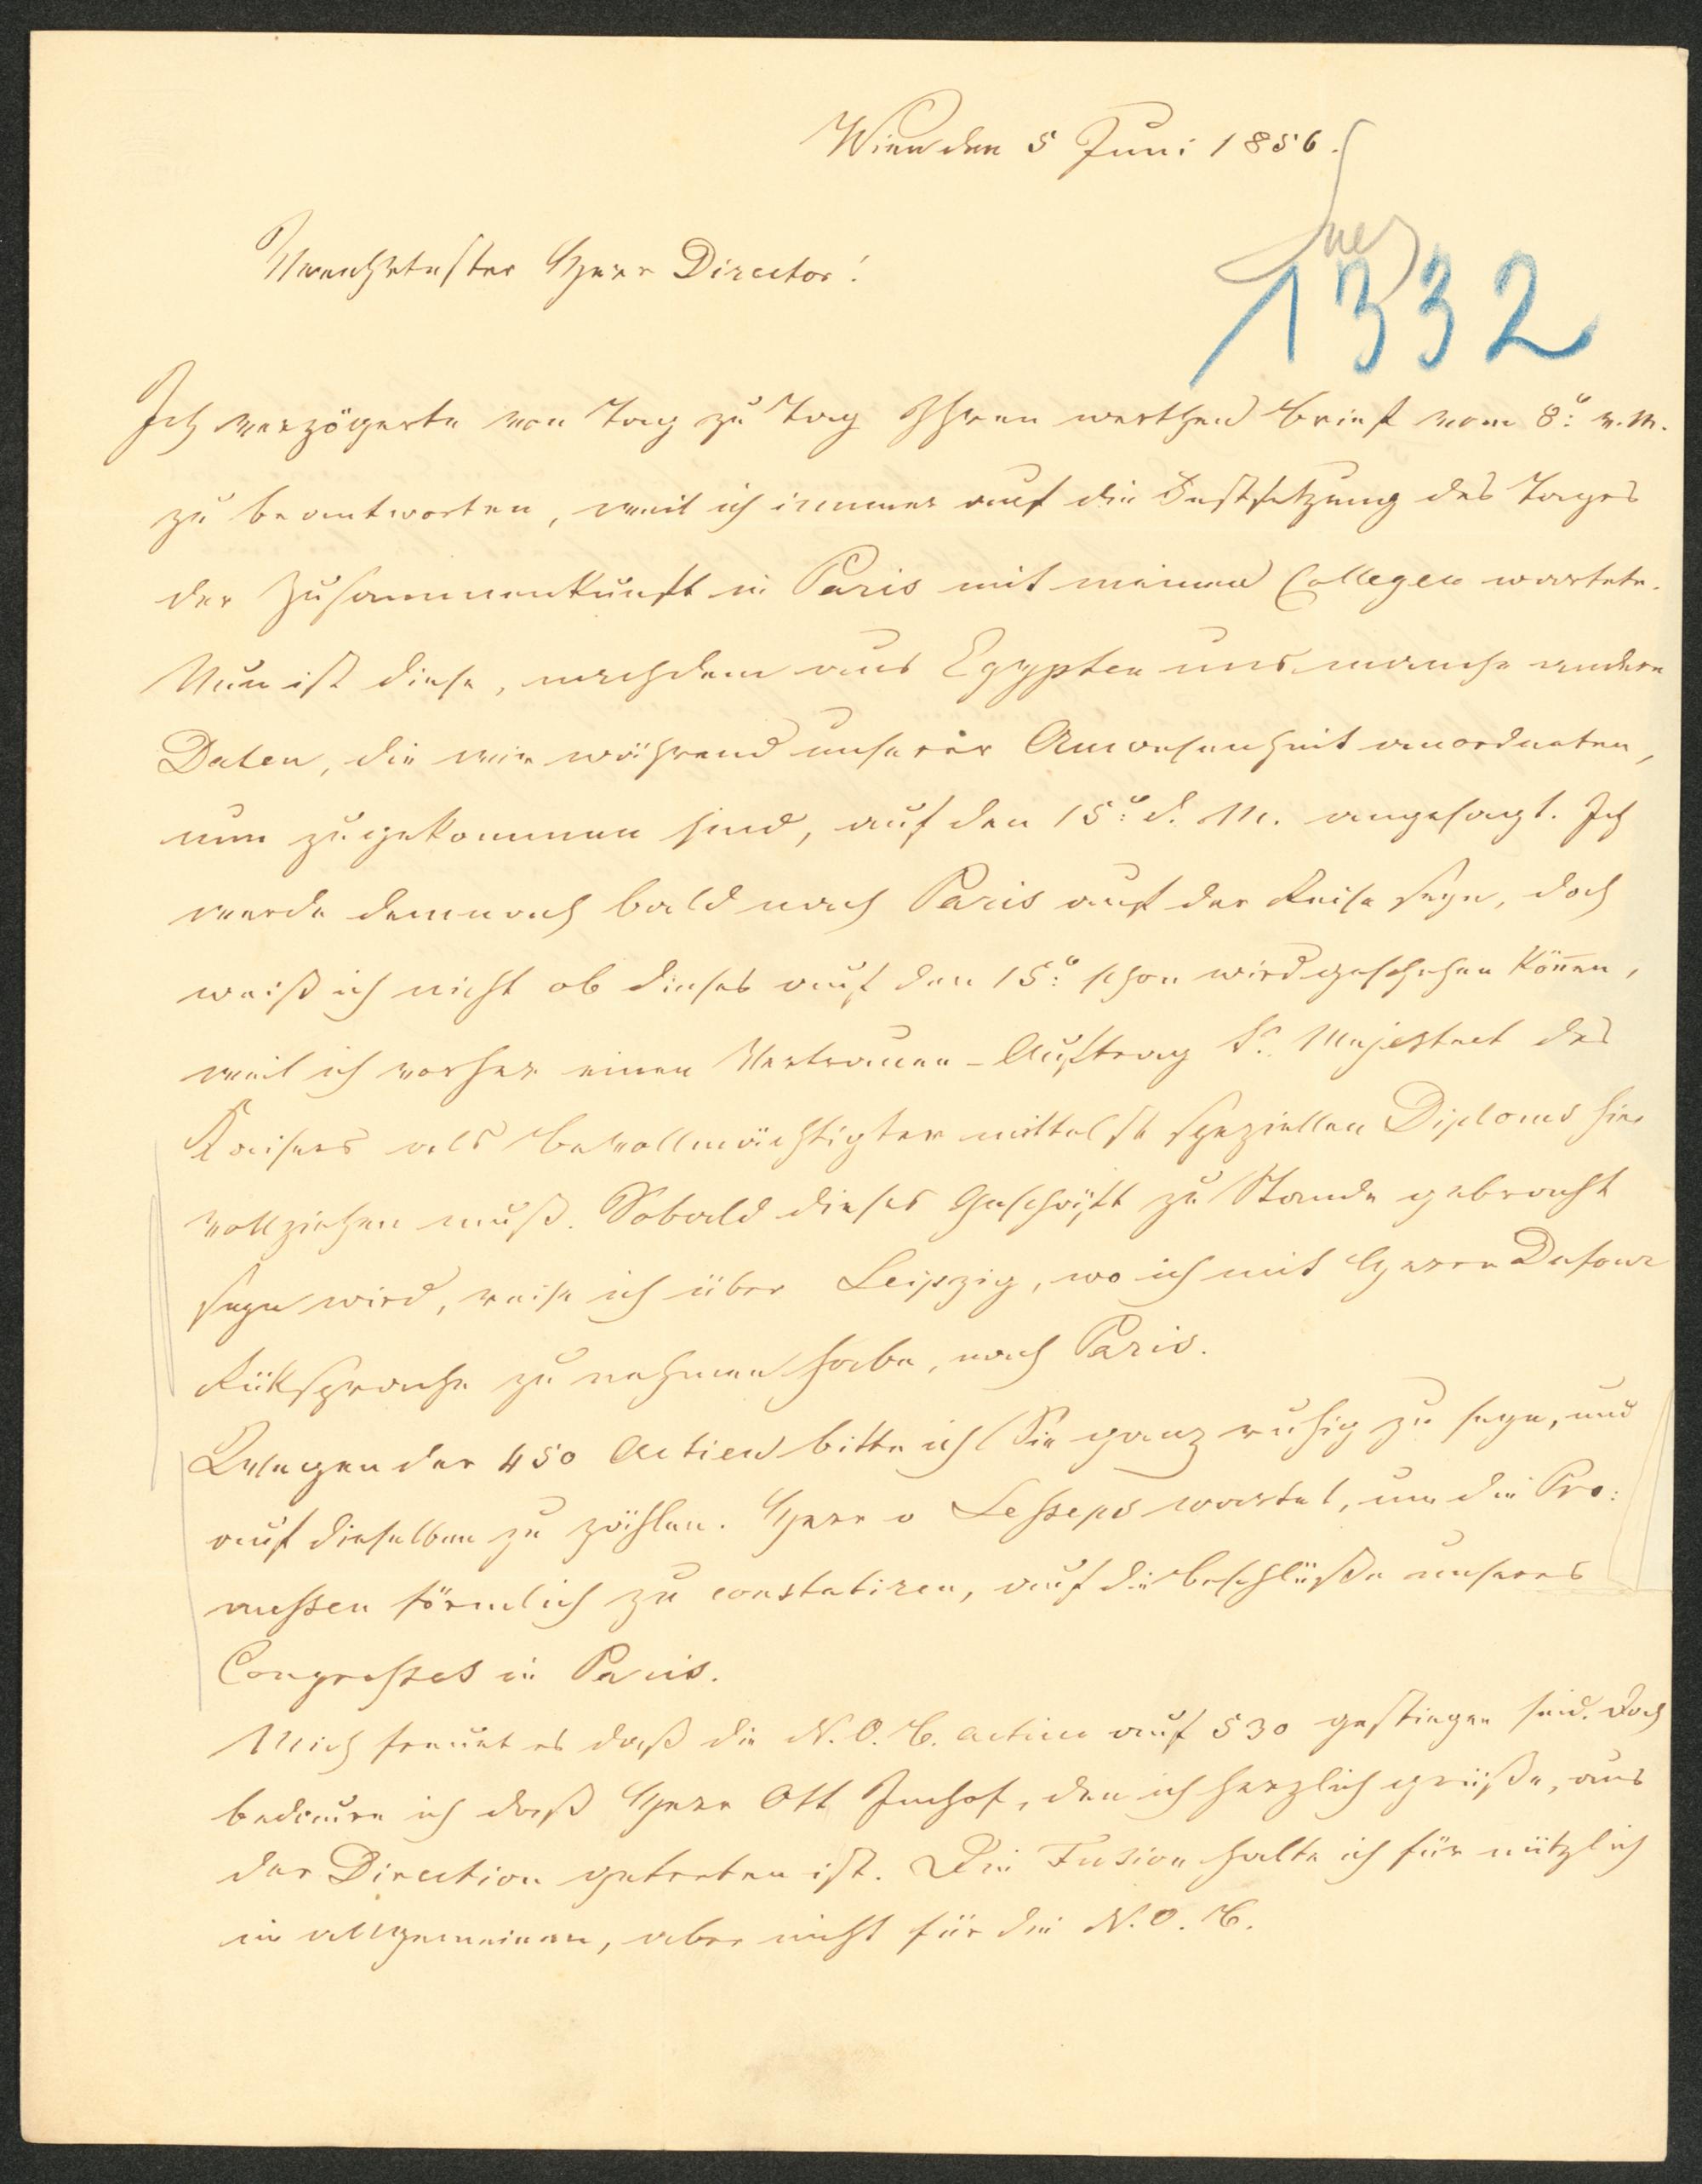 Wien den 5 Juni 1856.
Suez
1332
Verehrtester Herr Director!
Ich verzögerte von Tag zu Tag Ihren werthen Brief vom 8: v. M.
zu beantworten, weil ich immer auf die Festsetzung des Tages
der Zusammenkunft in Paris mit meinen Collegen wartete.
Nun ist diese, nachdem aus Egypten uns manche andere
Daten, die wir während unserer Anwesenheit anordneten,
nun zugekommen sind, auf den 15: d. M. angesagt. Ich
werde demnach bald nach Paris auf der Reise seyn, doch
weiß ich nicht ob dieses auf den 15: schon wird geschehen können,
weil ich vorher einen Vertrauen-Auftrag Sr. Majestaet des
Kaisers als Bevollmächtigter mittelst speziellen Diploms hier
vollziehen muß. Sobald dieses Geschäft zu Stande gebracht
seyn wird, reise ich über Leipzig, wo ich mit Herrn Dufour
Rüksprache zu nehmen habe, nach Paris.
Wegen der 450 Actien bitte ich Sie ganz ruhig zu seyn, und
auf dieselben zu zählen. Herr v Lesseps wartet, um die Pro:
messen förmlich zu constatiren, auf die Beschlüße unseres
Congresses in Paris.
Mich freuet es daß die N. O. B. Actien auf 530 gestiegen sind. Doch
bedaure ich daß Herr Ott Imhof, den ich herzlich grüße, aus
der Direction getreten ist. Die Fusion halte ich für nützlich
im allgemeinen, aber nicht für die N. O. B.